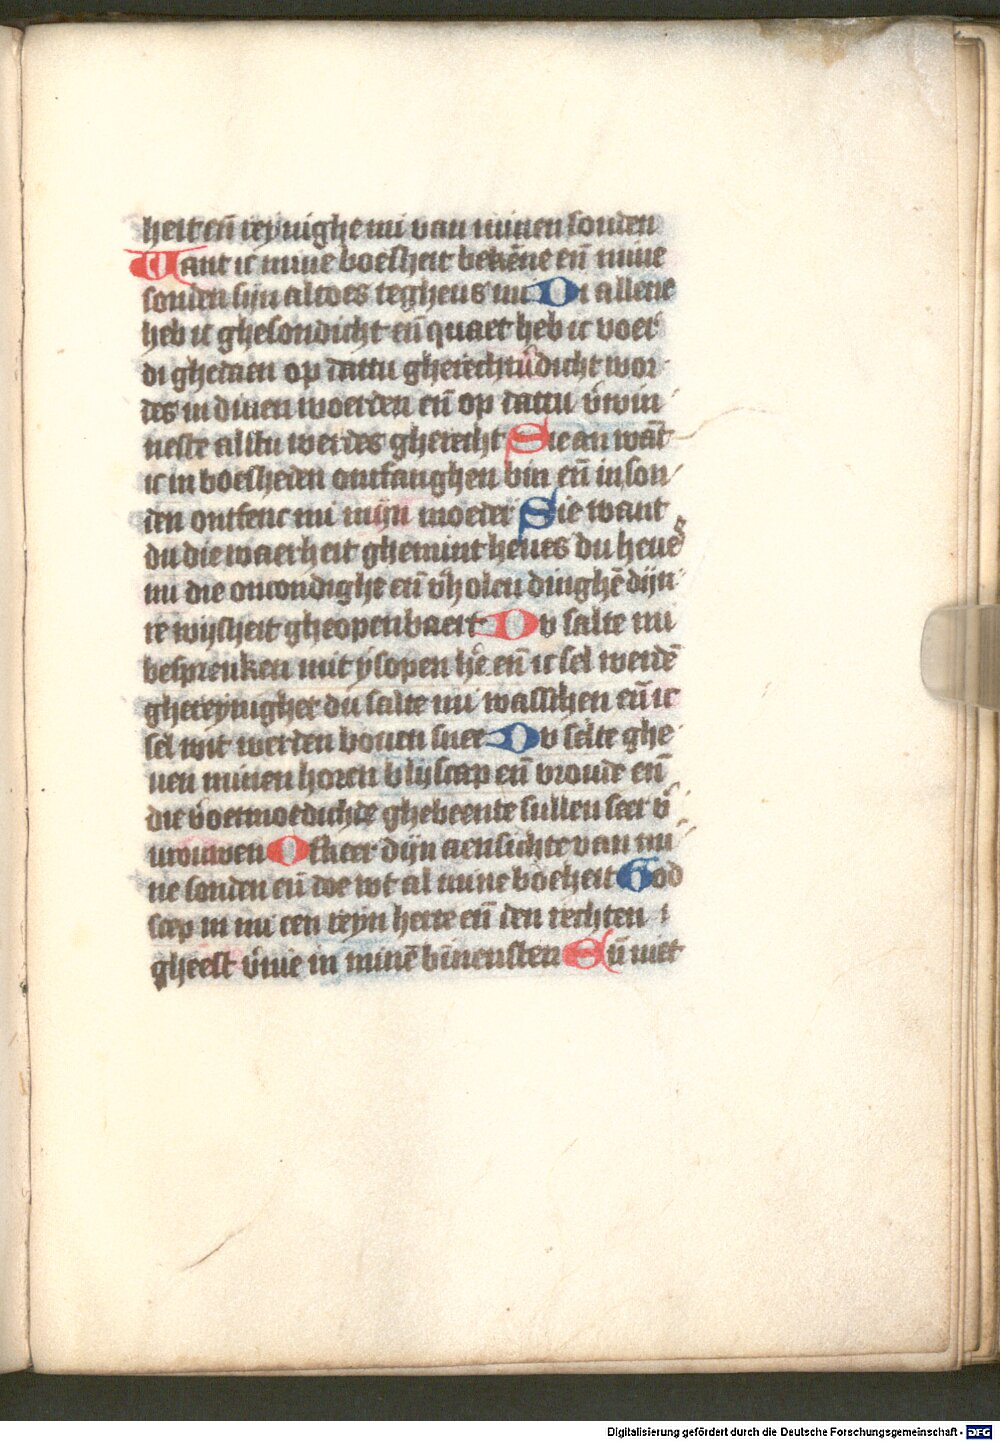 heit eñ reynighe mi van minen sonden
Want ic mine boesheit bekēne eñ mine
sonden sijn altoes teghens mi Di allene
heb ic ghesondicht eñ quaet heb ic voer
di ghedaen op dattu gherechtúdicht wor
des in dinen woerden eñ op dattu v̓win
neste alstu werdes gherecht Sie an wāt
ic in boesheden ontfanghen bin eñ in son
den ontfenc mi mijn moeder Sie want
du die waerheit ghemint heues du heues
mi die oncondighe eñ v̓holen dinghē dijn
re wijsheit gheopenbaert Du salte mi
besprenken mit ysopen he̓ eñ ic sel werdē
ghereynighet du salte mi wasschen eñ ic
sel wit werden bouen snee Du selte ghe
uen minen horen blijscap eñ vroude eñ
die v̓oetmoedichde ghebeente sullen seer v̓
vrouwen Ofkeer dijn aensichte van mi
ne sonden eñ doe wt al mine boeheit God
scep in mi een reyn herte eñ den rechten
gheest v̓nie in minē binensten Eñ met
Digitalisierung gefördert durch die Deutsche Forschungsgemeinschaft - DFG